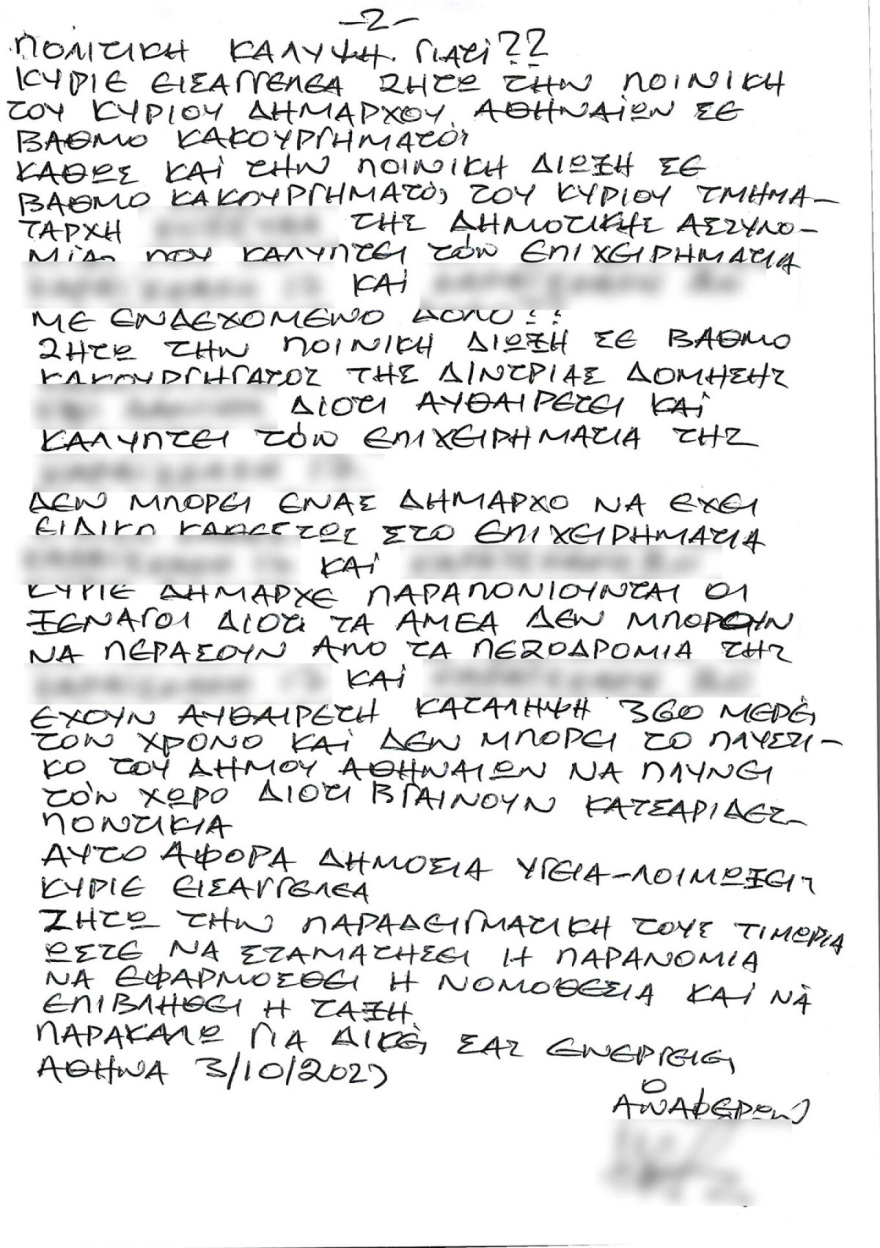 -2-
ΠΟΛΙΤΙΚΗ ΚΑΛΥΨΗ. ΓΙΑΤΙ??
ΚΥΡΙΕ ΕΙΣΑΓΓΕΛΕΑ ΖΗΤΩ ΤΗΝ ΠΟΙΝΙΚΗ
ΤΟΥ ΚΥΡΙΟΥ ΔΗΜΑΡΧΟΥ ΑΘΗΝΑΙΩΝ ΣΕ
ΒΑΘΜΟ ΚΑΚΟΥΡΓΗΜΑΤΟΣ
ΚΑΘΩΣ ΚΑΙ ΤΗΝ ΠΟΙΝΙΚΗ ΔΙΩΞΗ ΣΕ
ΒΑΘΜΟ ΚΑΚΟΥΡΓΗΜΑΤΟΣ ΤΟΥ ΚΥΡΙΟΥ ΤΜΗΜΑ-
ΤΑΡΧΗ ΤΗΣ ΔΗΜΟΤΙΚΗΣ ΑΣΤΥΝΟ-
ΜΙΑΣ ΠΟΥ ΚΑΛΥΠΤΕΙ ΤΟΝ ΕΠΙΧΕΙΡΗΜΑΤΙΑ
ΚΑΙ
ΜΕ ΕΝΔΕΧΟΜΕΝΟ ΔΟΛΟ??
ΖΗΤΩ ΤΗΝ ΠΟΙΝΙΚΗ ΔΙΩΞΗ ΣΕ ΒΑΘΜΟ
ΚΑΚΟΥΡΓΗΓΑΤΟΣ ΤΗΣ ΔΙΝΤΡΙΑΣ ΔΟΜΗΣΗΣ
ΔΙΟΤΙ ΑΥΘΑΙΡΕΤΕΙ ΚΑΙ
ΚΑΛΥΠΤΕΙ ΤΟΝ ΕΠΙΧΕΙΡΗΜΑΤΙΑ ΤΗΣ
ΔΕΝ ΜΠΟΡΕΙ ΕΝΑΣ ΔΗΜΑΡΧΟ ΝΑ ΕΧΕΙ
ΕΙΔΙΚΟ ΚΑΘΕΣΤΩΣ ΣΤΟ ΕΠΙΧΕΙΡΗΜΑΤΙΑ
ΚΑΙ
ΚΥΡΙΕ ΔΗΜΑΡΧΕ ΠΑΡΑΠΟΝΙΟΥΝΤΑΙ ΟΙ
ΞΕΝΑΓΟΙ ΔΙΟΤΙ ΤΑ ΑΜΕΑ ΔΕΝ ΜΠΟΡΟΥΝ
ΝΑ ΠΕΡΑΣΟΥΝ ΑΠΟ ΤΑ ΠΕΖΟΔΡΟΜΙΑ ΤΗΣ
ΚΑΙ
ΕΧΟΥΝ ΑΥΘΑΙΡΕΤΗ ΚΑΤΑΛΗΨΗ 360 ΜΕΡΕΣ
ΤΟΝ ΧΡΟΝΟ ΚΑΙ ΔΕΝ ΜΠΟΡΕΙ ΤΟ ΠΛΥΣΤΙ-
ΚΟ ΤΟΥ ΔΗΜΟΥ ΑΘΗΝΑΙΩΝ ΝΑ ΠΛΥΝΕΙ
ΤΟΝ ΧΩΡΟ ΔΙΟΤΙ ΒΓΑΙΝΟΥΝ ΚΑΤΣΑΡΙΔΕΣ
ΠΟΝΤΙΚΙΑ
ΑΥΤΟ ΑΦΟΡΑ ΔΗΜΟΣΙΑ ΥΓΕΙΑ-ΛΟΙΜΩΞΕΙΣ
ΚΥΡΙΕ ΕΙΣΑΓΓΕΛΕΑ
ΖΗΤΩ ΤΗΝ ΠΑΡΑΔΕΙΓΜΑΤΙΚΗ ΤΟΥΣ ΤΙΜΩΡΙΑ
ΩΣΤΕ ΝΑ ΣΤΑΜΑΤΗΣΕΙ Η ΠΑΡΑΝΟΜΙΑ
ΝΑ ΕΦΑΡΜΟΣΘΕΙ Η ΝΟΜΟΘΕΣΙΑ ΚΑΙ ΝΑ
ΕΠΙΒΛΗΘΕΙ Η ΤΑΞΗ
ΠΑΡΑΚΑΛΩ ΓΙΑ ΔΙΚΕΣ ΣΑΣ ΕΝΕΡΓΕΙΕΣ
ΑΘΗΝΑ 3/10/202
Ο
ΑΝΑΦΕΡΩΝ